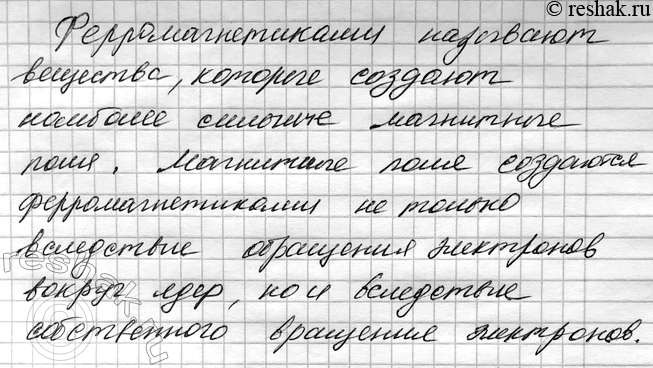 © reshak.ru
Ферромагнетиками называют
вещества, которые создают
наиболее сильные магнитные
поля. Магнитные поля создаются
ферромагнетиками не только
вследствие обращения электронов
вокруг ядер, но и вследствие
собственного вращения электронов.
reshak.ru